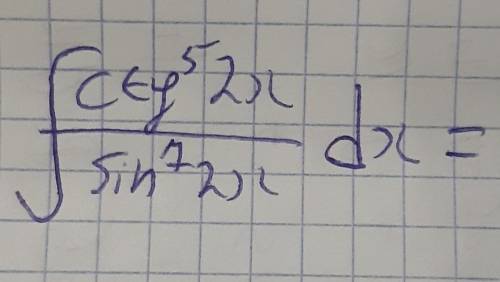 ∫ ctg⁵2x / sin⁷2x dx =